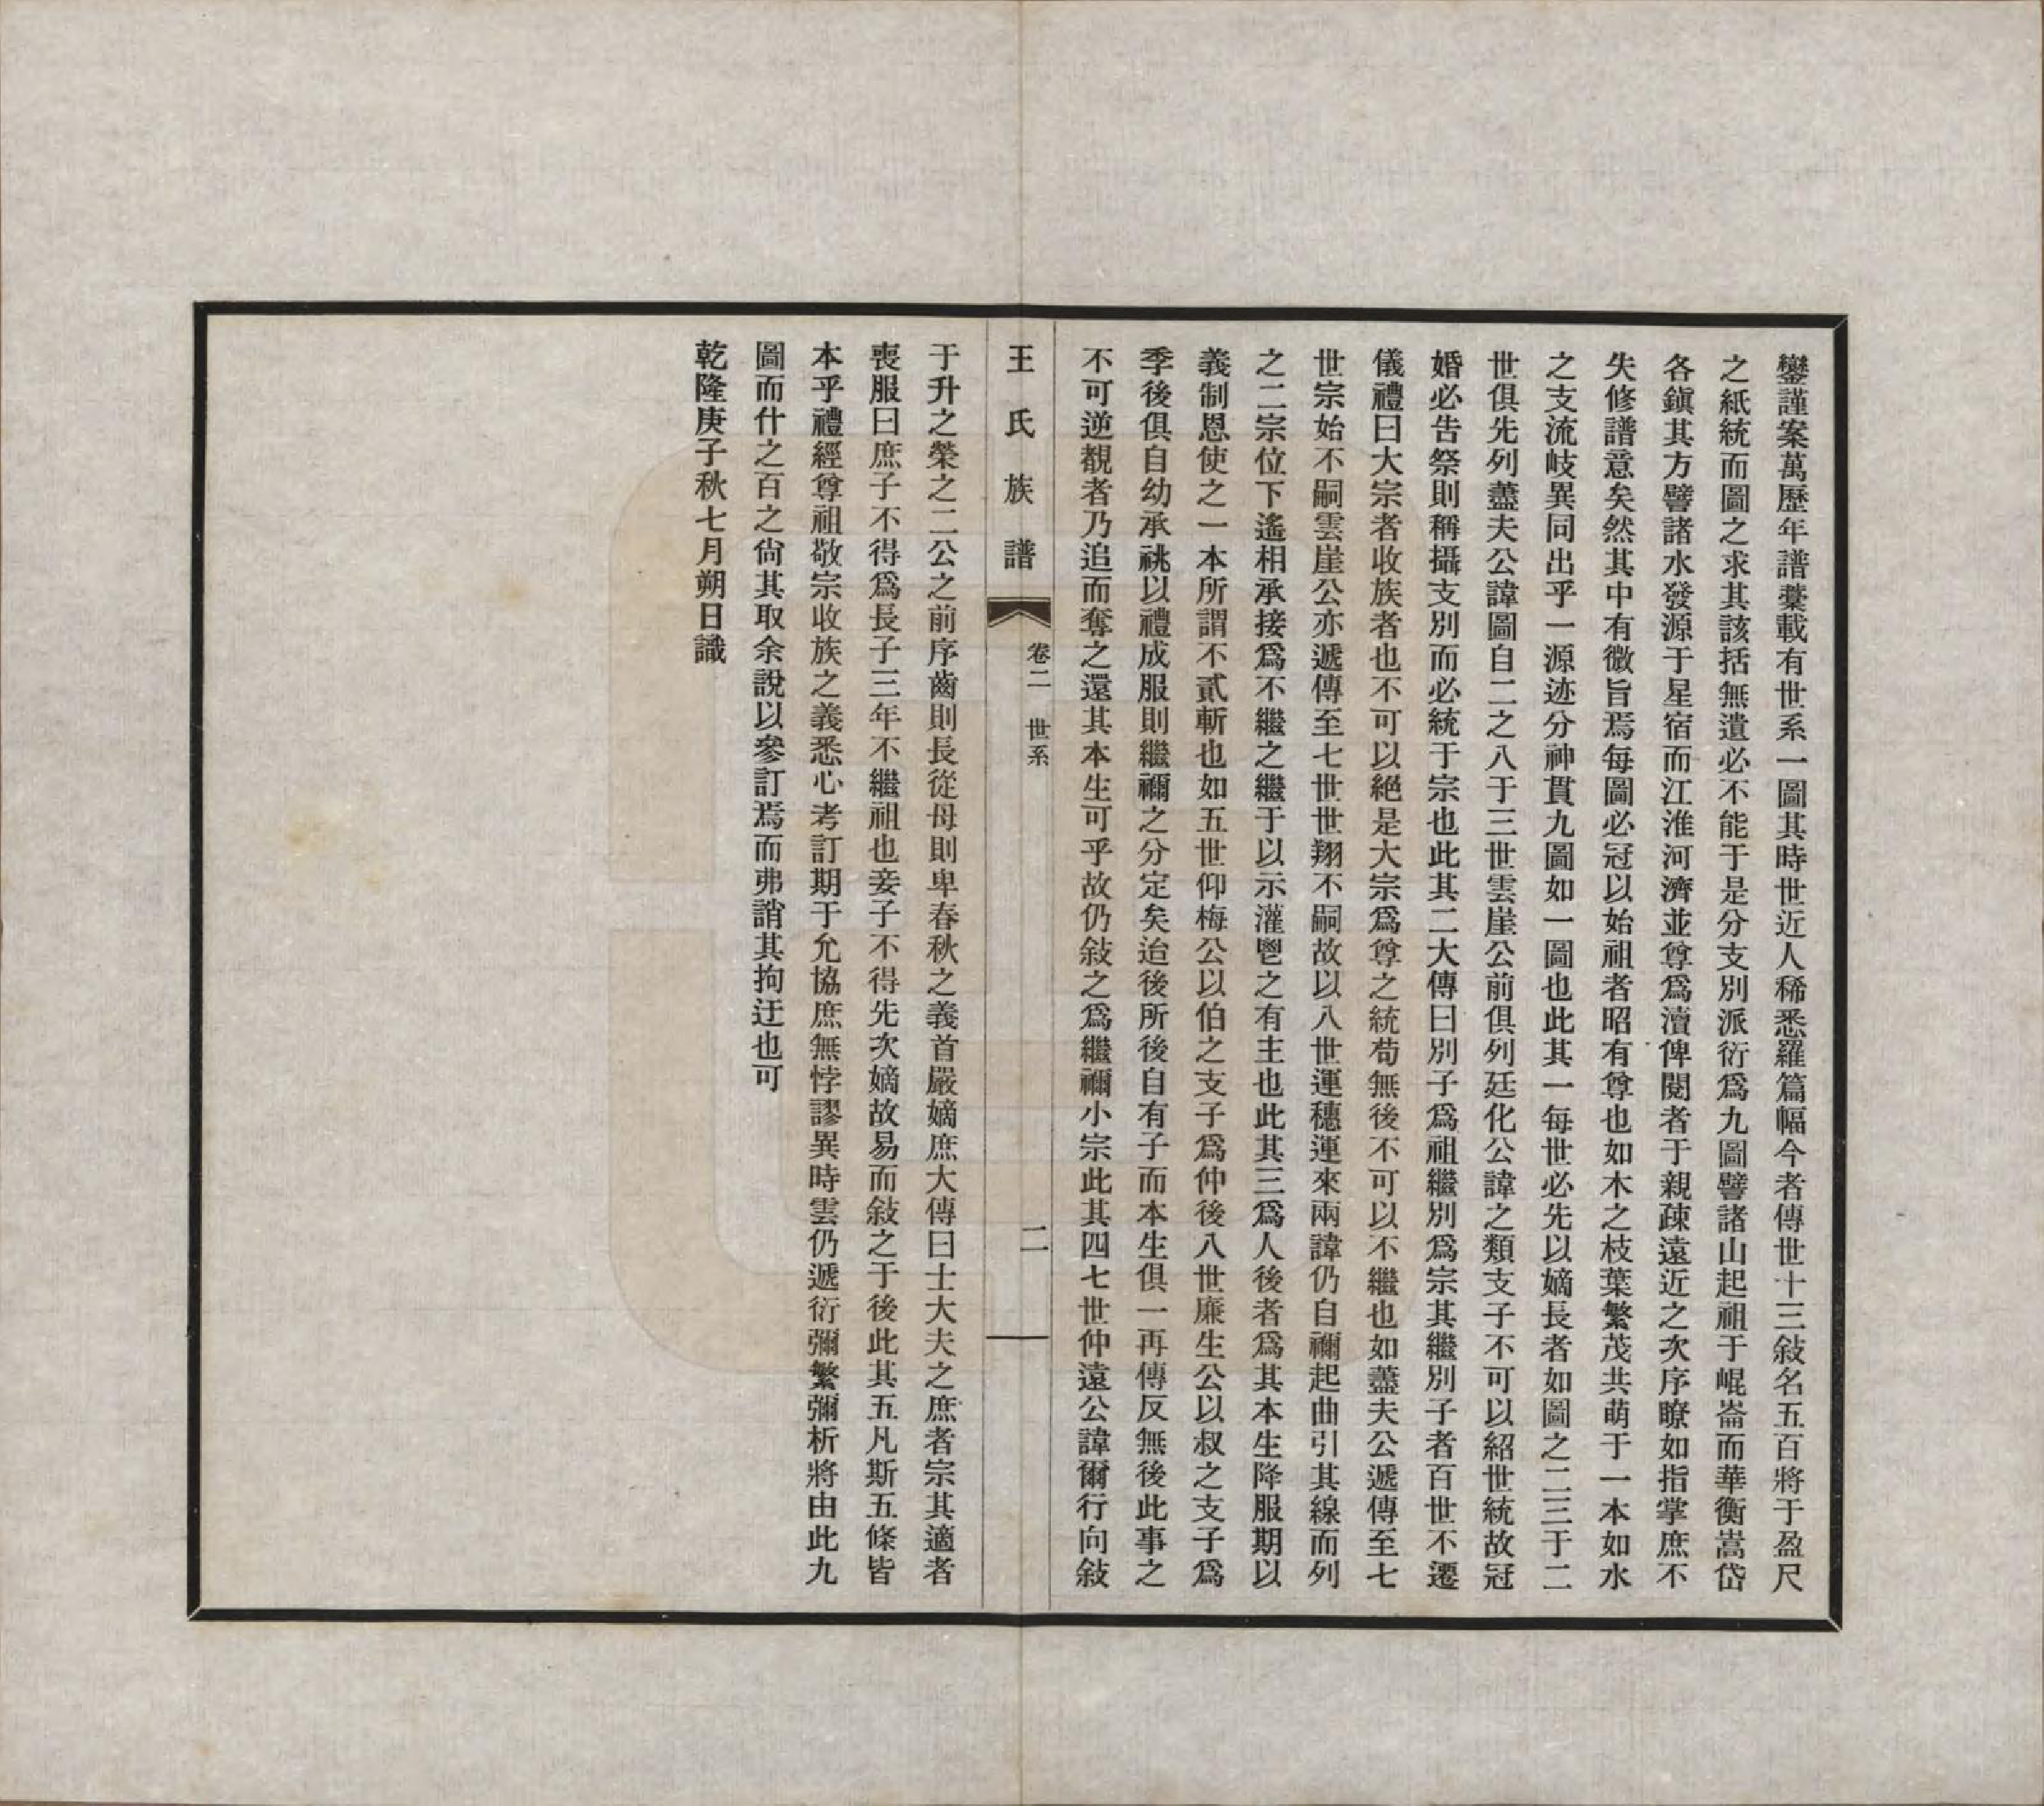 鑾謹案萬歷年譜藁載有世系一圖其時世近人稀悉羅篇幅今者傳世十三敍名五百將于盈尺
之紙統而圖之求其該括無遺必不能于是分支別派衍爲九圖譬諸山起祖于崐崙而華衡嵩岱
各鎭其方譬諸水發源于星宿而江淮河濟並尊爲瀆俾閱者于親疎遠近之次序瞭如指掌庶不
失修譜意矣然其中有微旨焉每圖必冠以始祖者昭有尊也如木之枝葉繁茂共萌于一本如水
之支流岐異同出乎一源迹分神貫九圖如一圖也此其一每世必先以嫡長者如圖之二三于二
世俱先列藎夫公諱圖自二之八于三世雲崖公前俱列廷化公諱之類支子不可以紹世統故冠
婚必告祭則稱攝支別而必統于宗也此其二大傳曰別子爲祖繼別爲宗其繼別子者百世不遷
儀禮曰大宗者收族者也不可以絕是大宗爲尊之統苟無後不可以不繼也如藎夫公遞傳至七
世宗始不嗣雲崖公亦遞傳至七世世翔不嗣故以八世運穗運來兩諱仍自禰起曲引其線而列
之二宗位下遙相承接爲不繼之繼于以示灌鬯之有主也此其三爲人後者爲其本生降服期以
義制恩使之一本所謂不貳斬也如五世仰梅公以伯之支子爲仲後八世廉生公以叔之支子爲
季後俱自幼承祧以禮成服則繼禰之分定矣迨後所後自有子而本生俱一再傳反無後此事之
不可逆覩者乃追而奪之還其本生可乎故仍敍之爲繼禰小宗此其四七世仲遠公諱爾行向敍
王氏族譜 卷二 世系 二
于升之榮之二公之前序齒則長從母則卑春秋之義首嚴嫡庶大傳曰士大夫之庶者宗其適者
喪服曰庶子不得爲長子三年不繼祖也妾子不得先次嫡故易而敍之于後此其五凡斯五條皆
本乎禮經尊祖敬宗收族之義悉心考訂期于允協庶無悖謬異時雲仍遞衍彌繁彌析將由此九
圖而什之百之尙其取余說以參訂焉而弗誚其拘迂也可
乾隆庚子秋七月朔日識